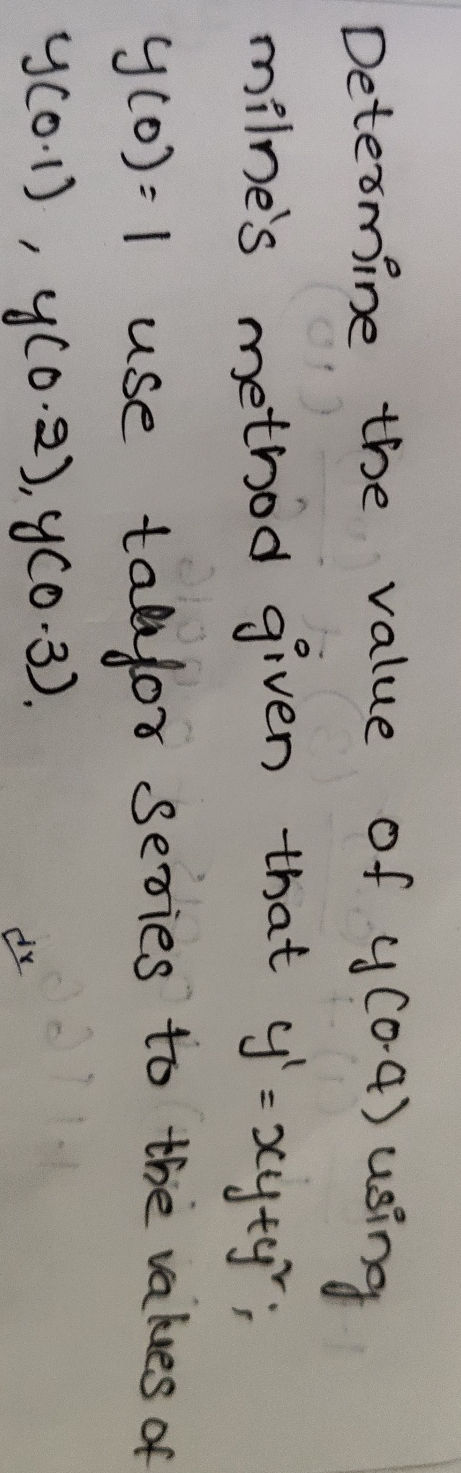 Determine the value of y(0.4) using
milne's method given that y' = xy+y²;
y(0)=1 use taylor series to the values of
y(0.1), y(0.2), y(0.3).